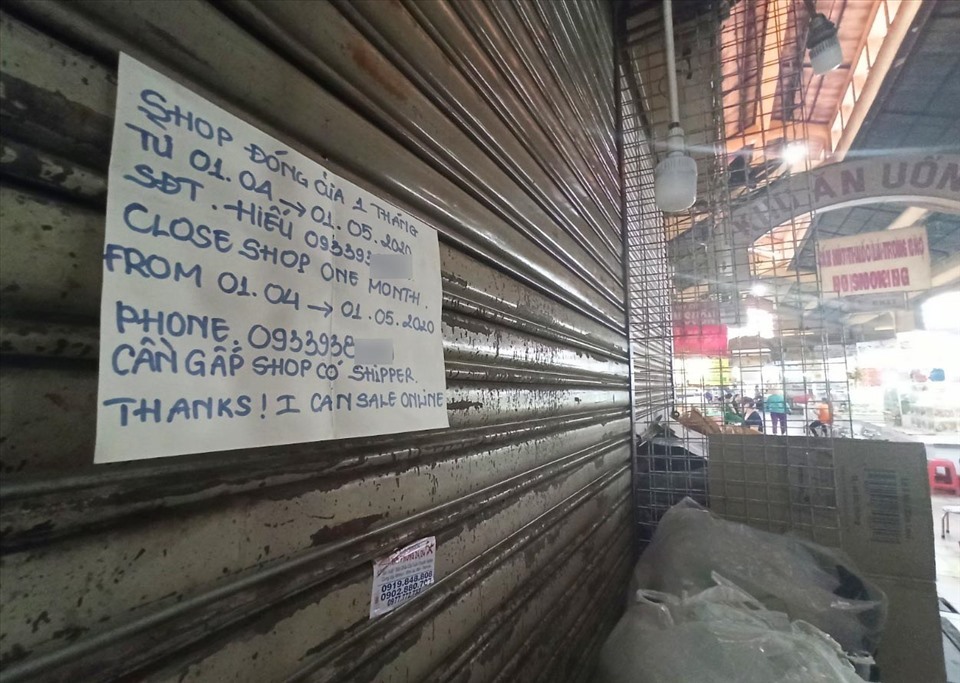 SHOP ĐÓNG CỬA 1 THÁNG
TỪ 01.04 → 01.05.2020
SĐT. HIẾU 093393
CLOSE SHOP ONE MONTH.
FROM 01.04 → 01.05.2020
PHONE: 0933938
CẦN GẤP SHOP CÓ SHIPPER.
THANKS! I CAN SALE ONLINE
0919.848.808
0902.880.7
KHU ĂN UỐN